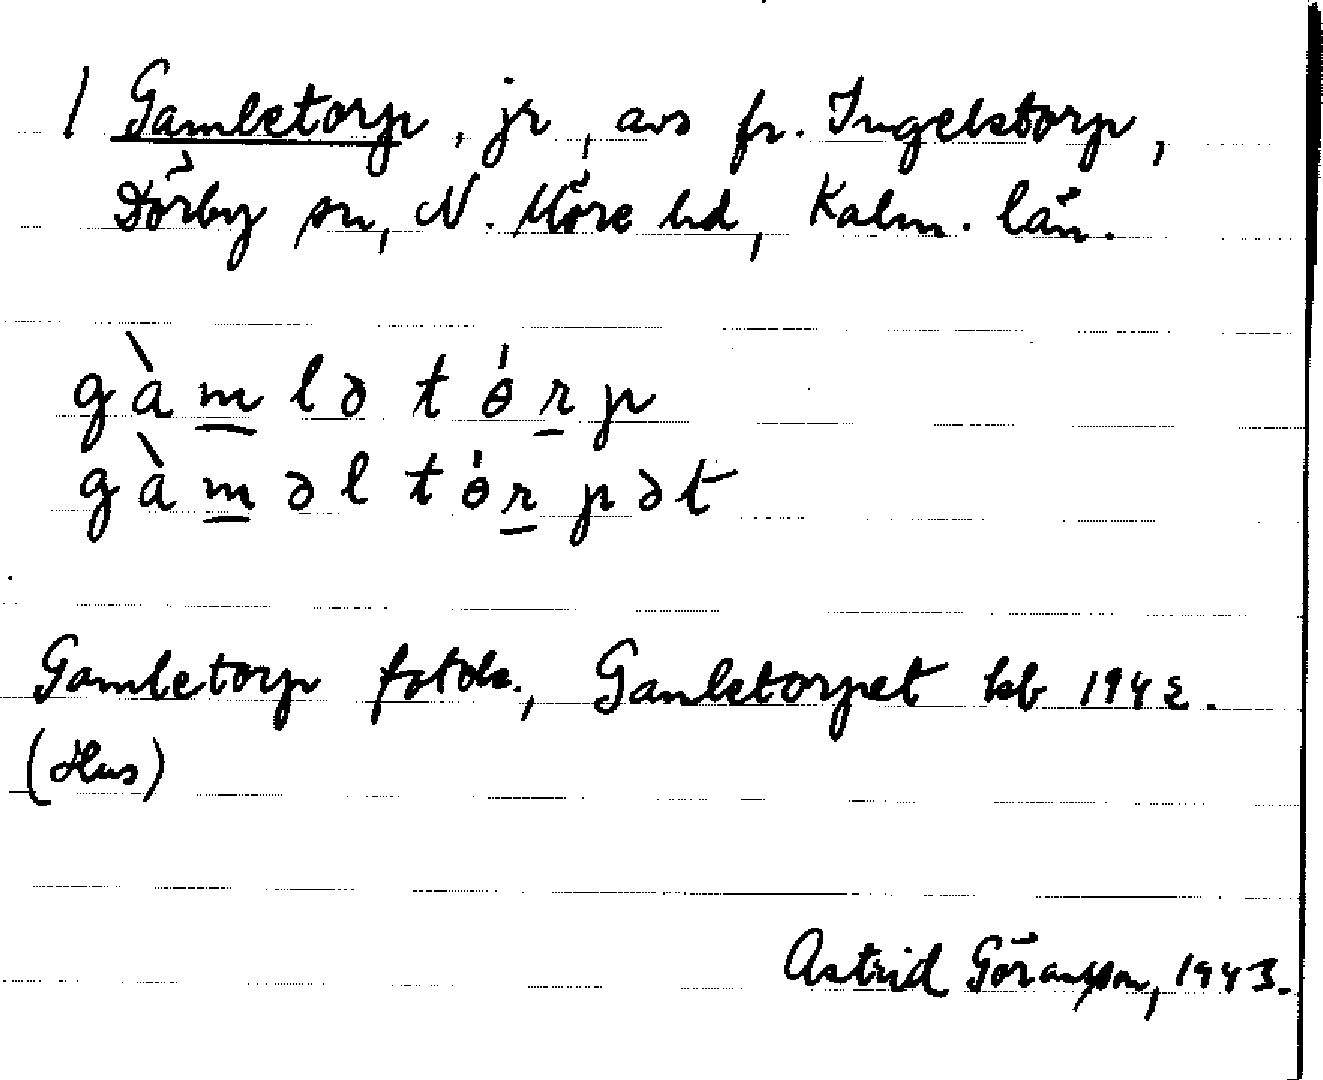 1 Gamletorp, jr, avs fr. Ingelstorp,
Dörby sn, N. Möre hd, Kalm. län.
gàmlə tɵ́rp
gàməl tɵ́rpət
Gamletorp fstds., Gamletorpet kb 1942.
(Hus)
Astrid Göransson, 1943.